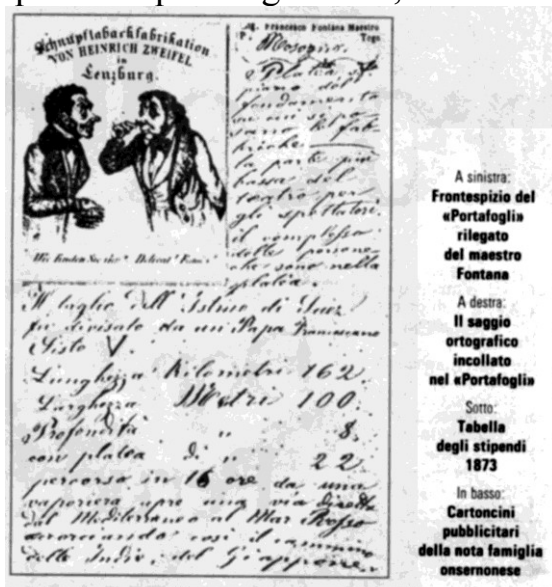 Schnupftabackfabrikation
VON HEINRICH ZWEIFEL
in
Lenzburg.
Wie finden Sie ihn? Delicat! Fein!
Francesco Fontana Maestro
Togo
Platea, il
piano del
fondamento
su cui si po-
sano le fab-
briche.
la parte più
bassa del
teatro per
gli spettatori.
il complesso
delle persone
che sono nella
platea.
Il taglio dell'Istmo di Suez
fu divisato da un Papa Francescano
Sisto V.
Lunghezza Kilometri 162.
Larghezza Metri 100.
Profondità " 8.
con platea di " 22.
percorso in 16 ore da una
vaporiera apre una via diretta
dal Mediterraneo al Mar Rosso
accorciando così il cammino
delle Indie, del Giappone.
A sinistra:
Frontespizio del
«Portafogli»
rilegato
del maestro
Fontana
A destra:
Il saggio
ortografico
incollato
nel «Portafogli»
Sotto:
Tabella
degli stipendi
1873
In basso:
Cartoncini
pubblicitari
della nota famiglia
onsernonese